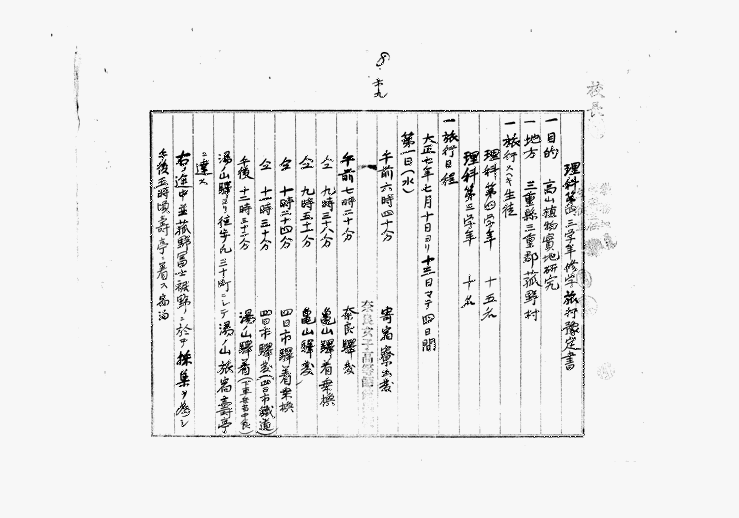 8.
校長
理科第四三学年修学旅行豫定書
一目的　高山植物實地研究
一地方　三重縣三重郡菰野村
一旅行スベキ生徒
理科第四学年　十五名
理科第三学年　十名
一旅行日程
大正七年七月十日ヨリ十三日マデ四日間
第一日(水)
午前六時四十分　寄宿寮出発
奈良女子高等師範
午前七時二十分　奈良驛発
仝　九時三十八分　亀山驛着乗換
仝　九時五十分　亀山驛発
仝　十時二十四分　四日市驛着乗換
仝　十一時三十分　四日市驛発(四日市鐵道)
午後　十二時三十二分　湯ノ山驛着
湯ノ山驛ヨリ徒歩凡三十町ニシテ湯ノ山旅宿壽亭
ニ達ス
右ノ途中並菰野冨士裾野ニ於テ採集ヲ為シ
午後五時頃壽亭ニ着ス宿泊